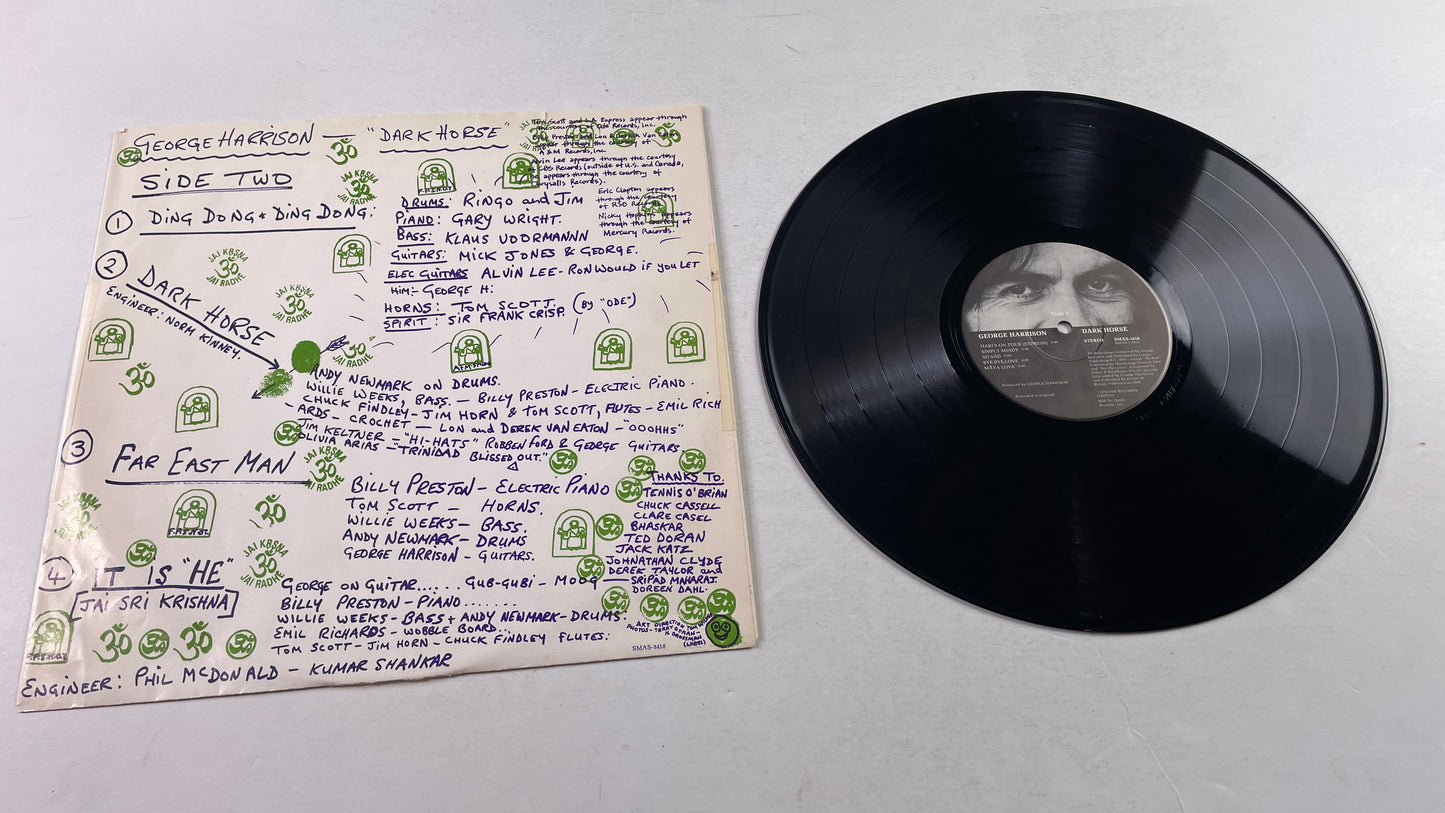 GEORGE HARRISON — "DARK HORSE"
SIDE TWO
① DING DONG * DING DONG:
DRUMS: RINGO and JIM
PIANO: GARY WRIGHT.
BASS: KLAUS VOORMANNN
GUITARS: MICK JONES & GEORGE.
ELEC GUITARS ALVIN LEE - RON WOULD IF YOU LET
HIM:- GEORGE H:
HORNS: TOM SCOTT. (BY "ODE")
SPIRIT: SIR FRANK CRISP.
Tom Scott and L.A. Express appear through
the courtesy of Ode Records, Inc.
appear through the courtesy of
A & M Records, Inc.
Alvin Lee appears through the courtesy
of CBS Records (outside of U.S. and Canada,
he appears through the courtesy of
Chrysalis Records).
Eric Clapton appears
through the courtesy
of RSO Records
Nicky Hopkins appears
through the courtesy of
Mercury Records.
② DARK HORSE
ENGINEER: NORM KINNEY.
ANDY NEWMARK ON DRUMS.
WILLIE WEEKS, BASS. — BILLY PRESTON - ELECTRIC PIANO.
CHUCK FINDLEY - JIM HORN & TOM SCOTT, FLUTES - EMIL RICH
- ARDS - CROCHET — LON and DEREK VAN EATON - "OOOHHS"
JIM KELTNER - "HI-HATS" ROBBEN FORD & GEORGE GUITARS.
OLIVIA ARIAS - "TRINIDAD BLISSED OUT."
③ FAR EAST MAN
BILLY PRESTON - ELECTRIC PIANO
TOM SCOTT — HORNS.
WILLIE WEEKS - BASS.
ANDY NEWMARK - DRUMS
GEORGE HARRISON - GUITARS.
THANKS TO.
TENNIS O'BRIAN
CHUCK CASSELL
CLARE CASEL
BHASKAR
TED DORAN
JACK KATZ
JOHNATHAN CLYDE
DEREK TAYLOR and
SRIPAD MAHARAJ.
DOREEN DAHL.
④ IT IS "HE"
[JAI SRI KRISHNA]
GEORGE ON GUITAR..... GUB-GUBI - MOOG
BILLY PRESTON - PIANO.......
WILLIE WEEKS - BASS + ANDY NEWMARK - DRUMS.
EMIL RICHARDS - WOBBLE BOARD...
TOM SCOTT - JIM HORN - CHUCK FINDLEY FLUTES:
ENGINEER: PHIL McDONALD — KUMAR SHANKAR
ART DIRECTION TOM
PHOTOS - TERRY DORAN -
(LABEL)
SMAS-3418
JAI KRSNA
ॐ
JAI RADHE
F.P.S.H.O.T.
Side 1
GEORGE HARRISON DARK HORSE
STEREO SMAS-3418
HARI'S ON TOUR (EXPRESS)
SIMPLY SHADY
SO SAD
BYE BYE, LOVE
MĀYA LOVE
Produced by GEORGE HARRISON
Recorded in England